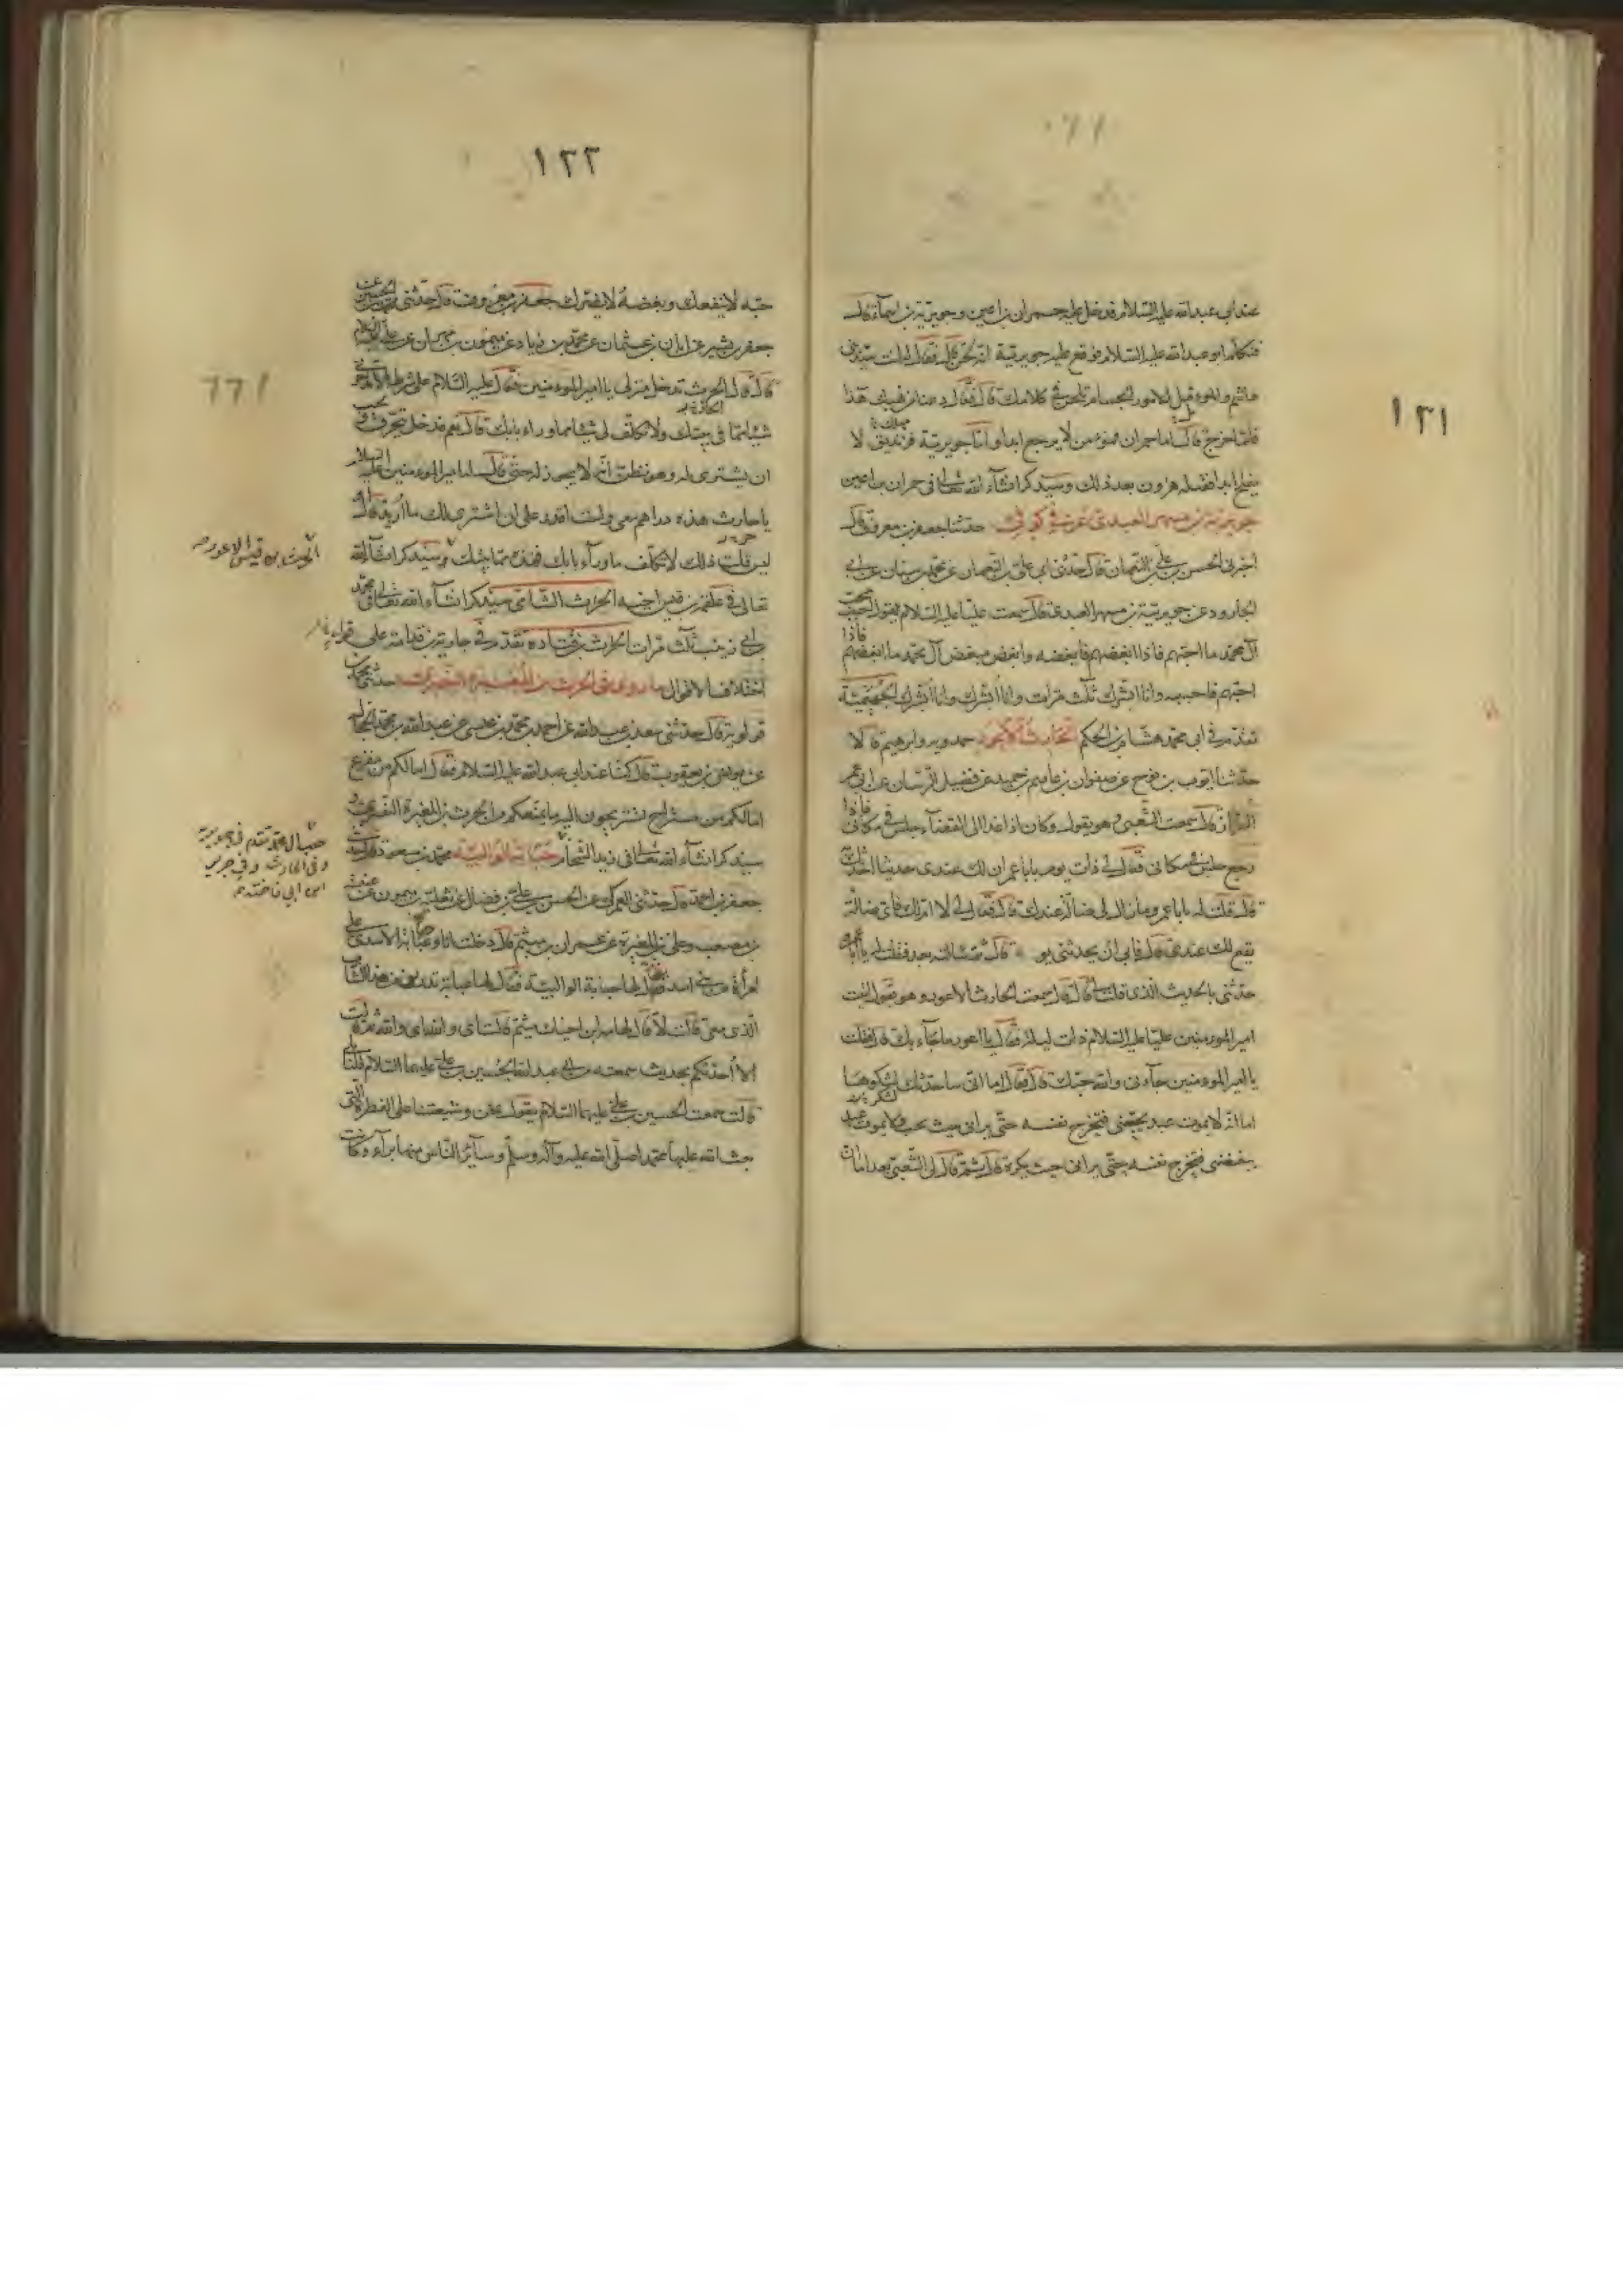 ١٢١
عند ابي عبد الله عليه السلام فدخل عليه حمران بن اعين وجويرية بن اسمآء قال
فتكلم ابو عبد الله عليه السلام فوقع عليه جويرية انه لحن قال فقال له انت سيد بني
هاشم والمؤمل للامور الجسام تلحن في كلامك قال فقال دعنا من تيهك هذا
فلما خرج قال اما حمران فمؤمن لا يرجع ابدا واما جويرية فزنديق لا
يفلح ابدا فقتله هرون بعد ذلك وسيذكر انشآء الله تعالى في حمران بن اعين
جويرية بن مسهر العبدي عربي كوفي حدثنا جعفر بن معروف قال
اخبرني الحسن بن علي بن النعمان قال حدثني ابي علي بن النعمان عن محمد بن سنان عن ابي
الجارود عن جويرية بن مسهر العبدي قال سمعت عليا عليه السلام يقول احب محب
آل محمد ما احبهم فاذا ابغضهم فابغضه وابغض مبغض آل محمد ما ابغضهم فاذا
احبهم فاحببه وانا ابشرك ثلث مرات وانا ابشرك وانا ابشرك الجهيمية
تقدم في ابي محمد هشام بن الحكم الحارث الاعور حمدويه وابرهيم قالا
حدثنا ايوب بن نوح عن صفوان بن عاصم بن حميد عن فضيل الرسان عن ابي عمر
البزاز قال سمعت الشعبي وهو يقول وكان اذا غدا الى القضآء جلس في مكاني فاذا
رجع جلس في مكاني فقال لي ذات يوم يا ابا عمر ان لك عندي حديثا احدثك
قال قلت له يا ابا عمرو مازال لي ضالة عندك قال فقال لي لا ام لك فاي ضالة
يقع لك عندي قال فابى ان يحدثني يو قال ثم سالته بعد فقلت له يا ابا عمرو
حدثني بالحديث الذي قلت لي قال سمعت الحارث الاعور وهو يقول اتيت
امير المؤمنين عليا عليه السلام ذات ليلة فقال يا اعور ما جآء بك قال فقلت
يا امير المؤمنين جآء بي والله حبك قال فقال اما اني ساحدثك لشكرها
اما انه لا يموت عبد يحبني فتخرج نفسه حتى يراني حيث يحب ولا يموت عبد
يبغضني فتخرج نفسه حتى يراني حيث يكره قال ثم قال لي الشعبي بعد اما ان
١٢٢
حبه لا ينفعك وبغضه لا يضرك جعفر بن معروف قال حدثني محمد بن الحسين عن
جعفر بن بشير عن ابان بن عثمان عن محمد بن زياد عن ميمون بن مهران عن علي عليه السلام
قال قال الحرث تدخل منزلي يا امير المؤمنين فقال عليه السلام على شرط ان لا تدخرني
شيئا مما في بيتك ولا تكلف لي شيئا مما ورآء بابك قال نعم فدخل يتحرق ويحب
ان يشتري له وهو يظن انه لا يجوز له حتى قال له امير المؤمنين عليه السلام
يا حارث هذه دراهم معي ولست اقدر على ان اشتري لك ما اريد قال
ليس قلت ذلك لا تكلف ما ورآء بابك فهذه مما في بيتك وسيذكر انشآء الله
تعالى في علقمة بن قيس اخيه الحرث الشامي سيذكر انشآء الله تعالى في محمد
ابي زينب ثلث مرات الحرث بن قتادة تقدم في جارية بن قدامة على
اختلاف الاقوال ما روي في الحرث بن المغيرة النصري حدثني محمد بن
قولويه قال حدثني سعد بن عبد الله عن احمد بن محمد بن عيسى عن عبد الله بن محمد الحجال
عن يونس بن يعقوب قال كنا عند ابي عبد الله عليه السلام فقال اما لكم من مفزع
اما لكم من مستراح تستريحون اليه ما يمنعكم من الحرث بن المغيرة النصري و
سيذكر انشآء الله تعالى في زيد الشحام حبابة الوالبية محمد بن مسعود قال حدثني
جعفر بن احمد قال حدثني العمركي عن الحسن بن علي بن فضال عن ثعلبة بن ميمون عن عنبسة
بن مصعب وعلي بن المغيرة عن عمران بن ميثم قال دخلت انا وعباية الاسدي على
امرأة من بني اسد يقال لها حبابة الوالبية فقال لها عباية تدرين من هذا الشاب
الذي معي قالت لا قال لها مه ابن اخيك ميثم قالت اي والله اي والله ثم قالت
الا احدثكم بحديث سمعته من ابي عبد الله الحسين بن علي عليهما السلام قلنا بلى
قالت سمعت الحسين بن علي عليهما السلام يقول نحن وشيعتنا على الفطرة التي
بعث الله عليها محمدا صلى الله عليه وآله وسلم وسآئر الناس منها برآء وكانت
الحرث بن قيس الاعور
حبال محمد تقدم في جويرية
وفي الحارث وفي
ابن ابي فاخته